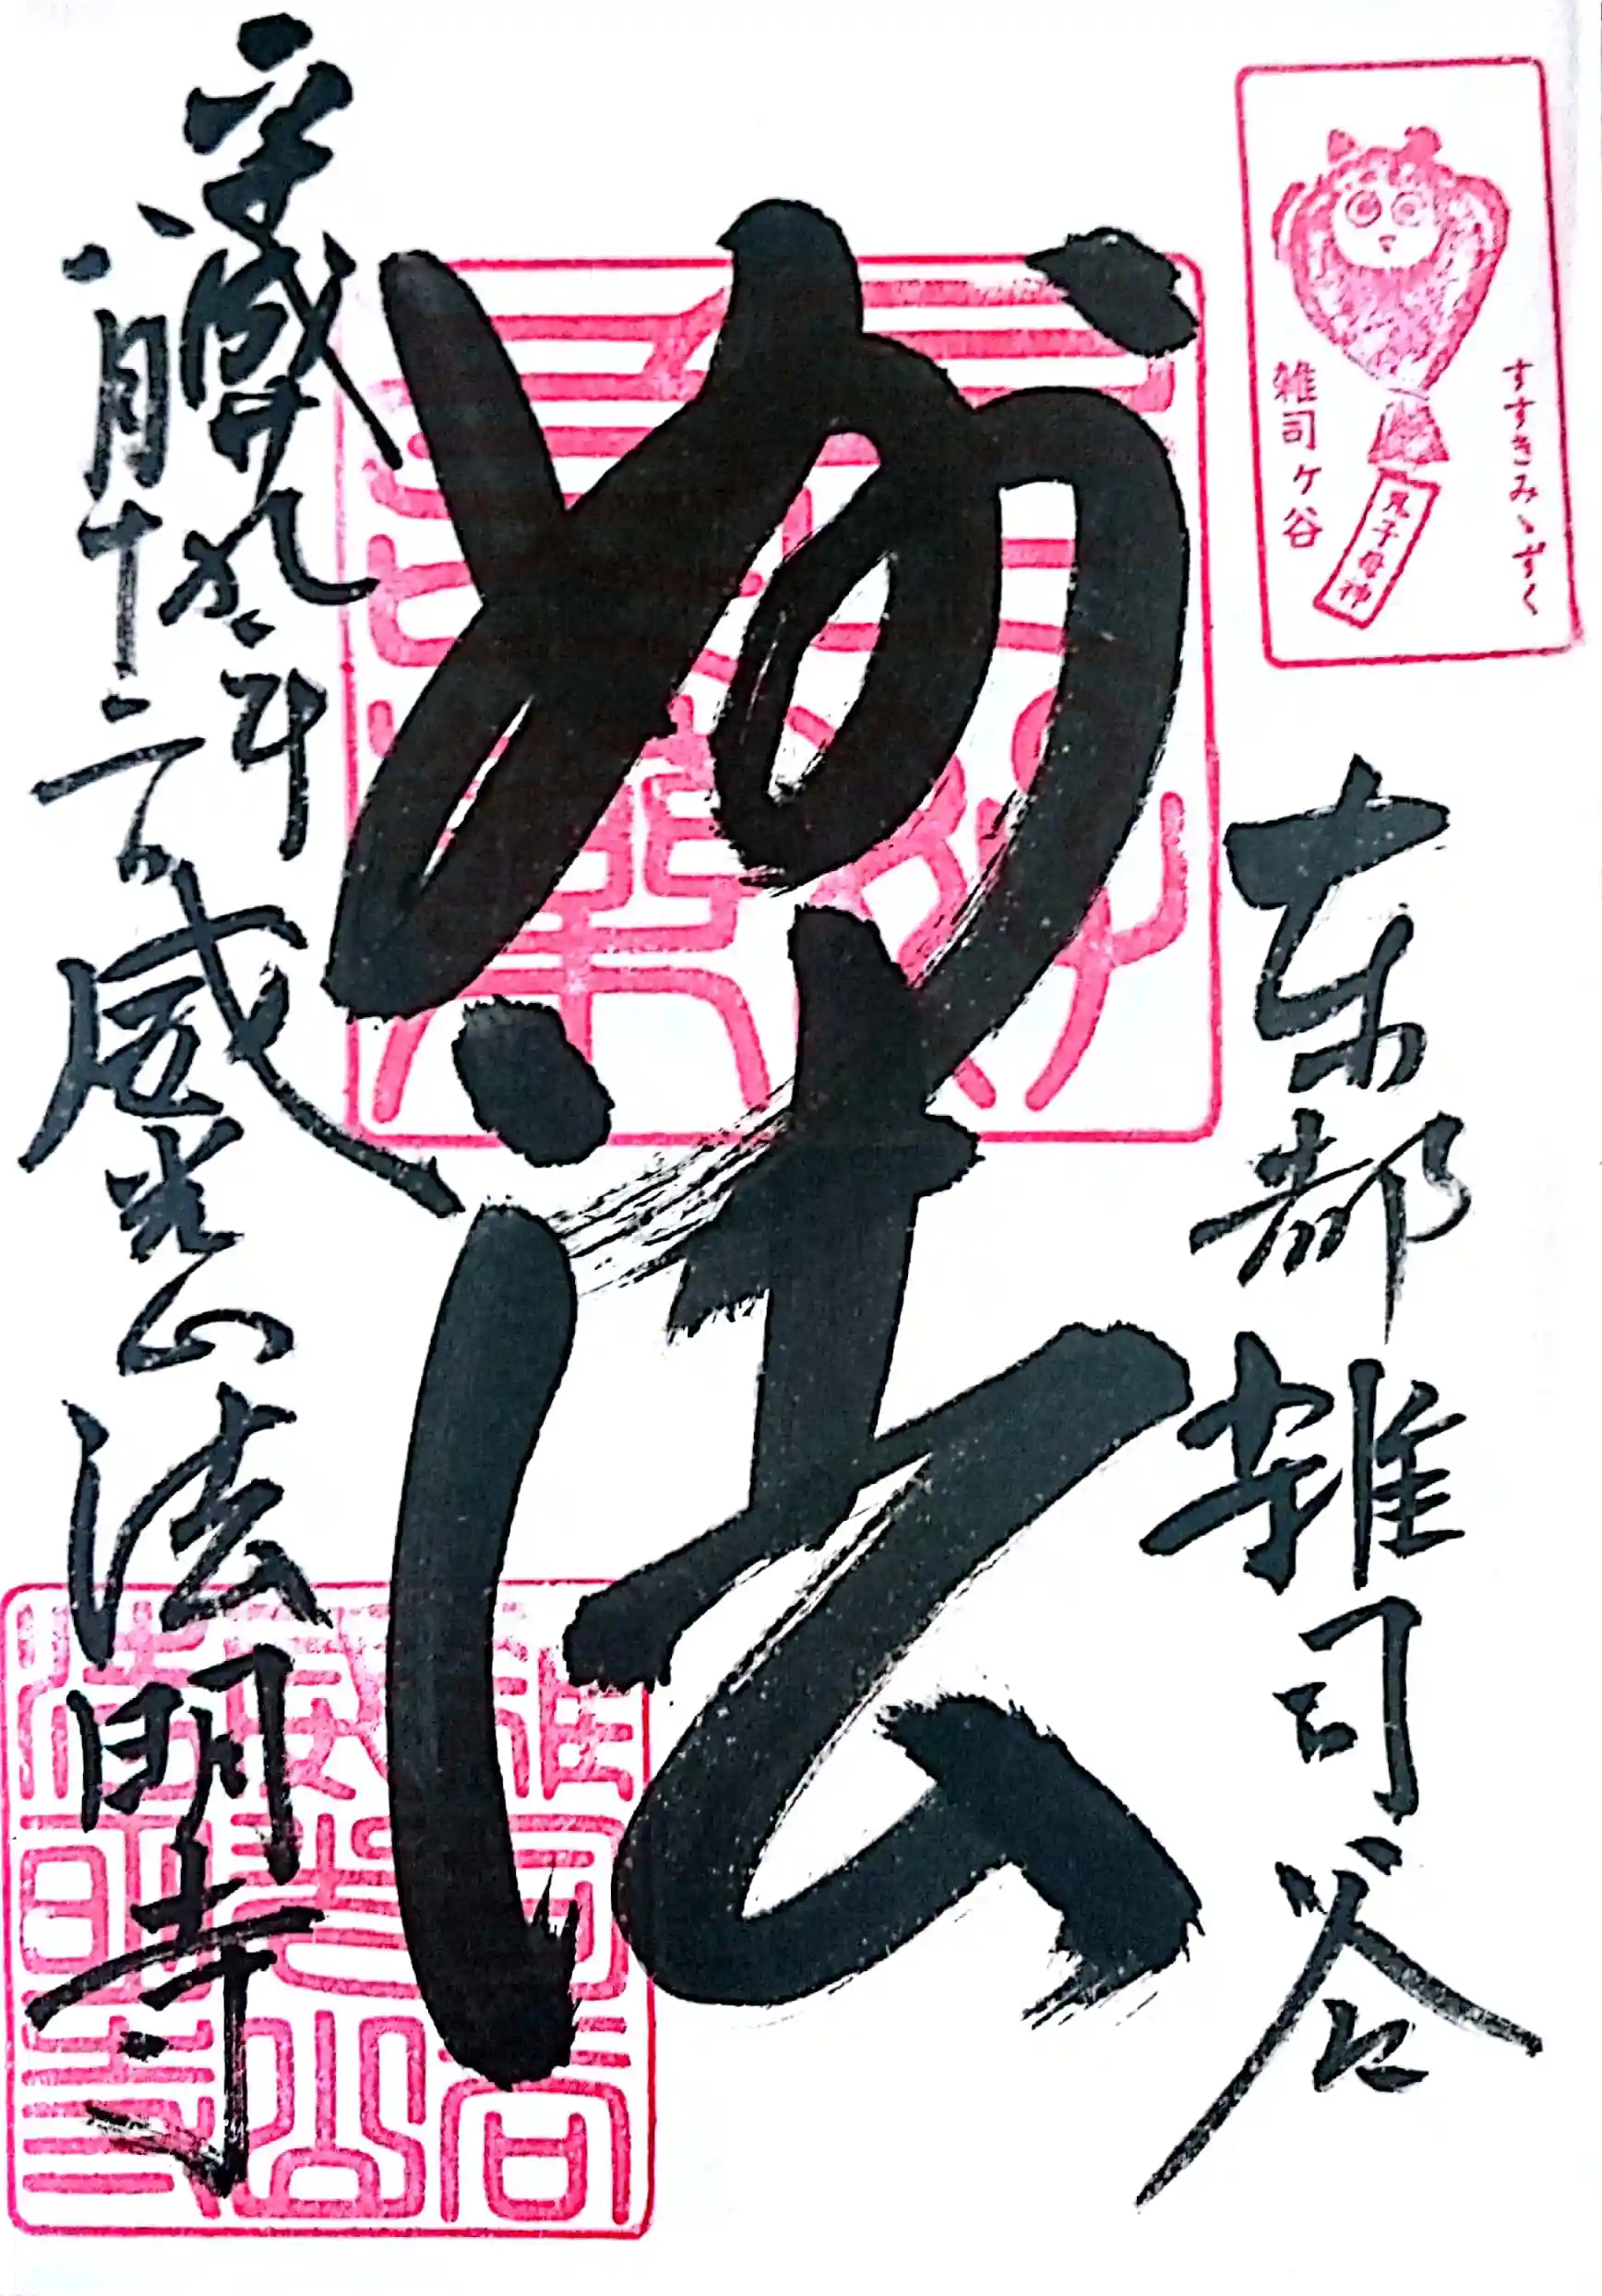 すすきみゝずく
雑司ケ谷
鬼子母神
东都雑司谷
妙法
平成廿九年
八月十二日
威光山法明寺